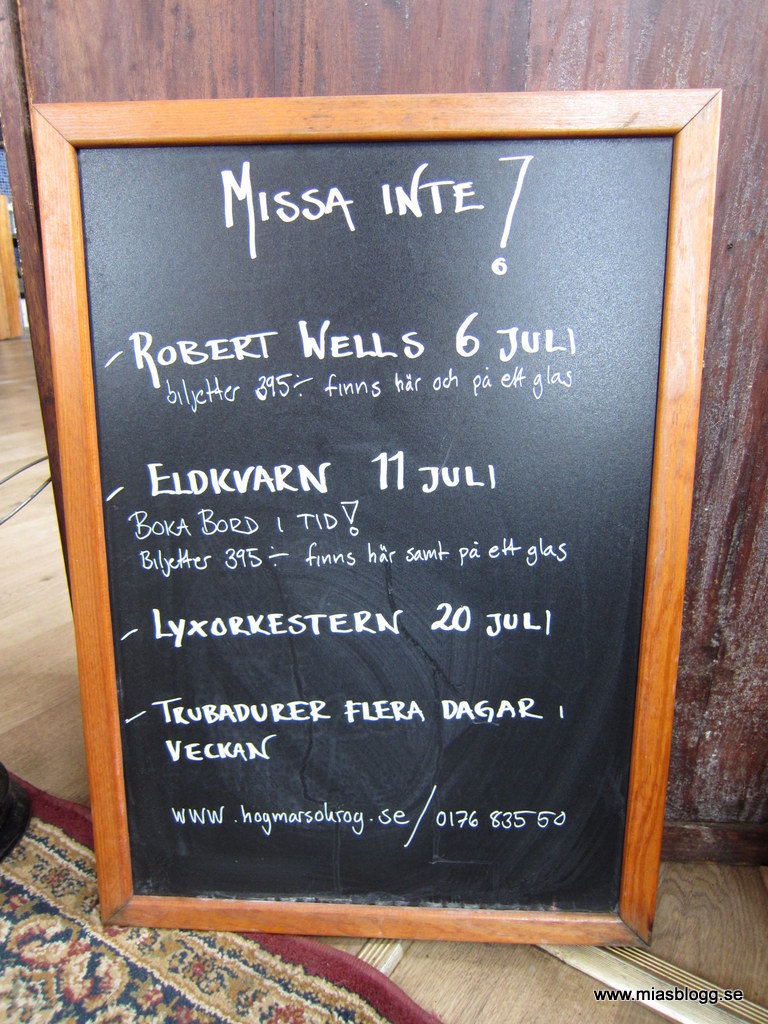 MISSA INTE!
- ROBERT WELLS 6 JULI
biljetter 395:- finns här och på ett glas
- ELDKVARN 11 JULI
BOKA BORD I TID!
Biljetter 395:- finns här samt på ett glas
- LYXORKESTERN 20 JULI
- TRUBADURER FLERA DAGAR I
VECKAN
www.hogmarsokrog.se/0176 835 50
www.miasblogg.se